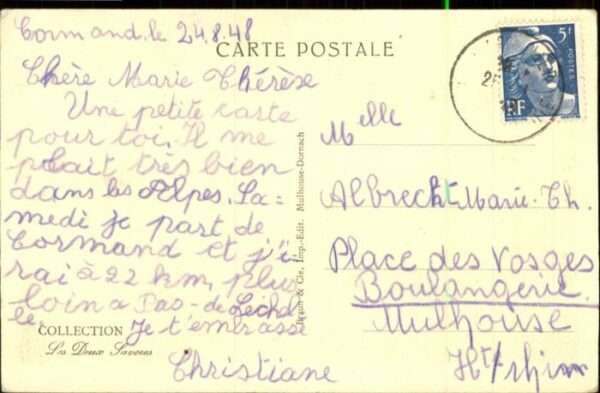 Cormand, le 24.8.48
CARTE POSTALE
Chère Marie Thérèse
Une petite carte
pour toi. Il me
plait très bien
dans les Alpes. Sa=
medi je part de
Cormand et j'i-
rai à 22 km plus
loin a Pas-de-l'échel
le. Je t'embrasse
Christiane
COLLECTION
Les Deux Savoies
Braun & Cie, Imp.-Edit. Mulhouse-Dornach
5f
POSTES
RF
Melle
Albrecht Marie-Th.
Place des Vosges
Boulangerie
Mulhouse
Ht/rhin